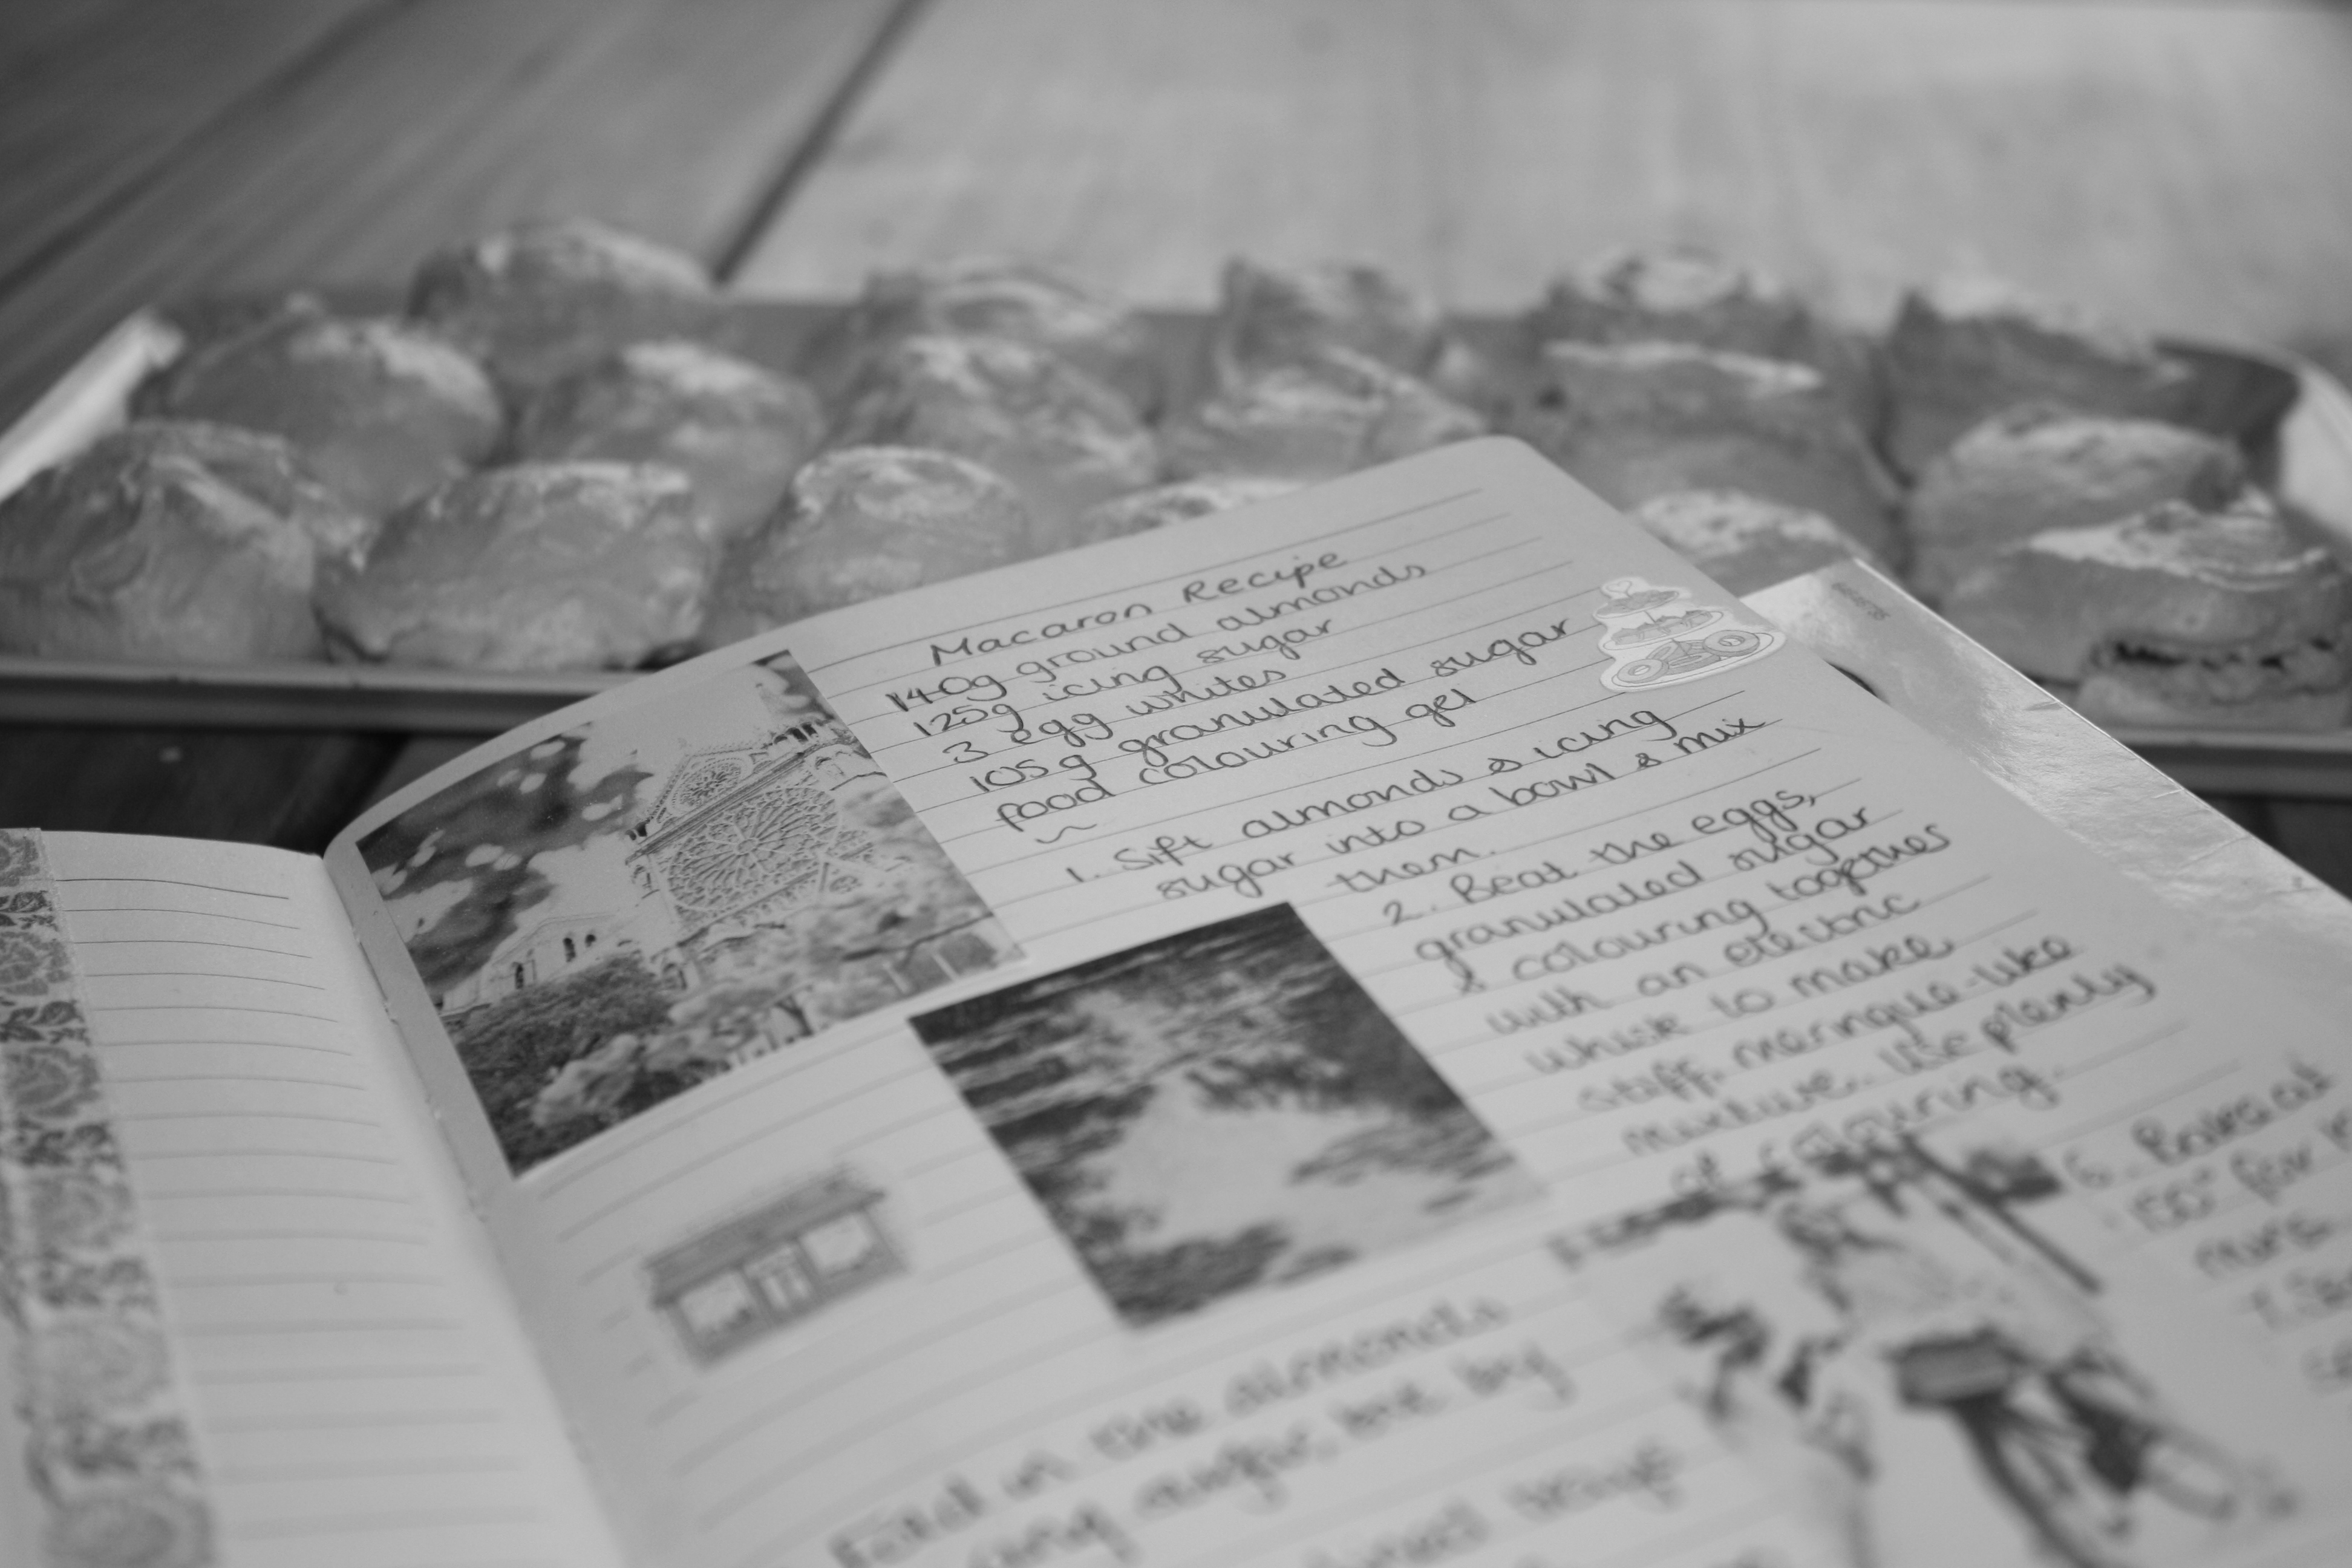 Macaron Recipe
140g ground almonds
125g icing sugar
3 egg whites
105g granulated sugar
food colouring gel
1. Sift almonds & icing
sugar into a bowl & mix
them.
2. Beat the eggs,
granulated sugar
& colouring together
with an electric
whisk to make
stiff, meringue-like
mixture. Use plenty
of colouring.
Fold in the almonds
6. Bake at
150° for